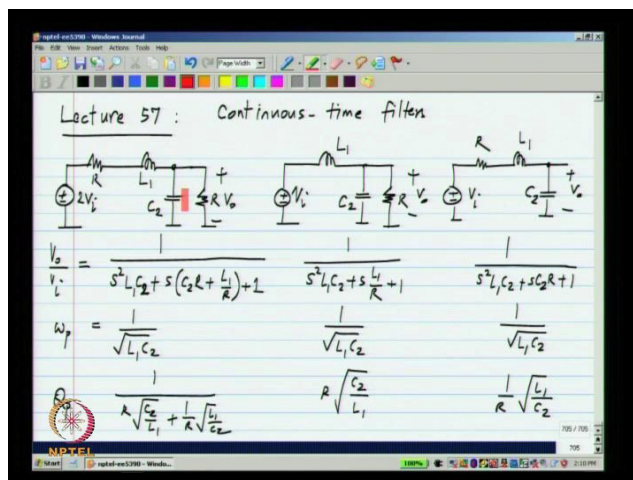 nptel-ee5390 - Windows Journal
File Edit View Insert Actions Tools Help
Page Width
B I
Lecture 57 : Continuous-time filters
R L₁ C₂ R V₀ + - 2Vᵢ
L₁ Vᵢ C₂ R V₀ + -
R L₁ Vᵢ C₂ V₀ + -
V₀/Vᵢ = 1/(s²L₁C₂ + s(C₂R + L₁/R) + 1) 1/(s²L₁C₂ + s L₁/R + 1) 1/(s²L₁C₂ + sC₂R + 1)
ωₚ = 1/√(L₁C₂) 1/√(L₁C₂) 1/√(L₁C₂)
Qₚ 1/(R√(C₂/L₁) + 1/R √(L₁/C₂)) R√(C₂/L₁) 1/R √(L₁/C₂)
NPTEL
705 / 705
705
Start nptel-ee5390 - Windo... 100% 2:10 PM